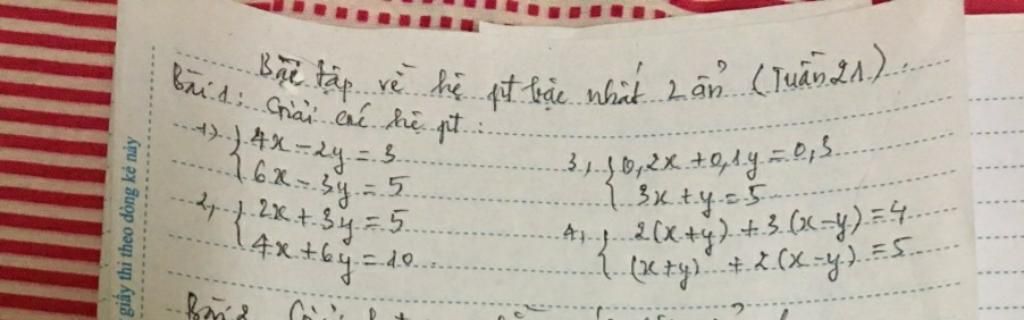 Bài tập về hệ pt bậc nhất 2 ẩn (Tuần 21).
Bài 1: Giải các hệ pt:
1) { 4x - 2y = 3
6x - 3y = 5
2, { 2x + 3y = 5
4x + 6y = 10
3, { 0,2x + 0,1y = 0,3
3x + y = 5
4, { 2(x+y) + 3(x-y) = 4
(x+y) + 2(x-y) = 5
giấy thi theo dòng kẻ này